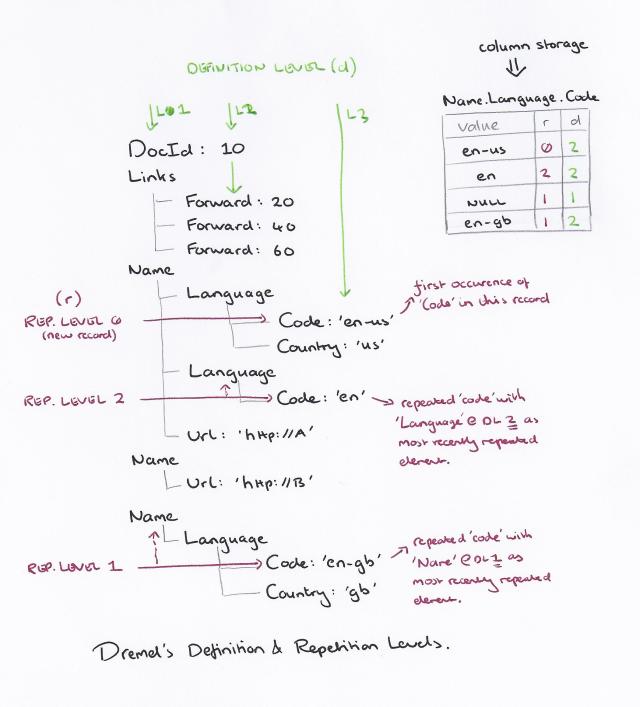 DEFINITION LEVEL (d)
column storage
L01
L2
L3
Name.Language.Code
value r d
en-us 0 2
en 2 2
NULL 1 1
en-gb 1 2
DocId: 10
Links
Forward: 20
Forward: 40
Forward: 60
Name
Language
(r)
REP. LEVEL 0
(new record)
Code: 'en-us'
Country: 'us'
first occurence of
'Code' in this record
Language
REP. LEVEL 2
Code: 'en'
repeated 'code' with
'Language' @ DL 2 as
most recently repeated
element.
Url: 'http://A'
Name
Url: 'http://B'
Name
Language
REP. LEVEL 1
Code: 'en-gb'
Country: 'gb'
repeated 'code' with
'Name' @ DL 1 as
most recently repeated
element.
Dremel's Definition & Repetition Levels.